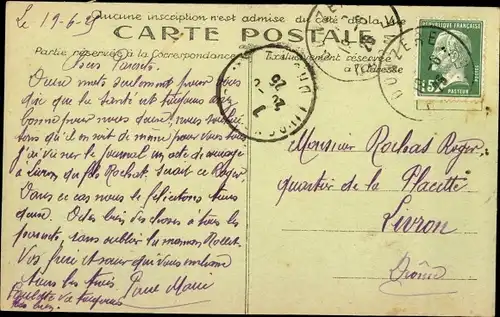 Le 19-6-25
Aucune inscription n'est admise du côté de la Vue
CARTE POSTALE
Partie réservée à la Correspondance
Exclusivement réservée
à l'Adresse
RÉPUBLIQUE FRANÇAISE
15c
PASTEUR
POSTES
Chers Parents.
Deux mots seulement pour vous
dire que la santé est toujours assez
bonne pour nous deux, nous souhaitons
qu'il en soit de même pour vous tous
J'ai vu sur le journal un acte de mariage
à Livron du fils Rochat, serait ce Roger.
Dans ce cas nous le félicitons tous
deux. Bien des choses à tous les
parents, sans oublier la maman
Vos frère et sœur qui vous embrassent
tous les trois
Paulette va toujours
très bien.
Monsieur Rochas Roger
quartier de la Placette
Livron
Drôme